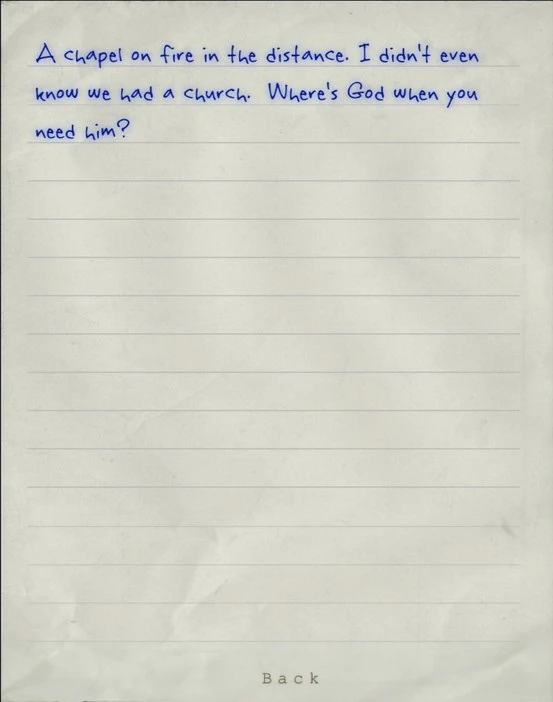 A chapel on fire in the distance. I didn't even
know we had a church. Where's God when you
need him?
Back